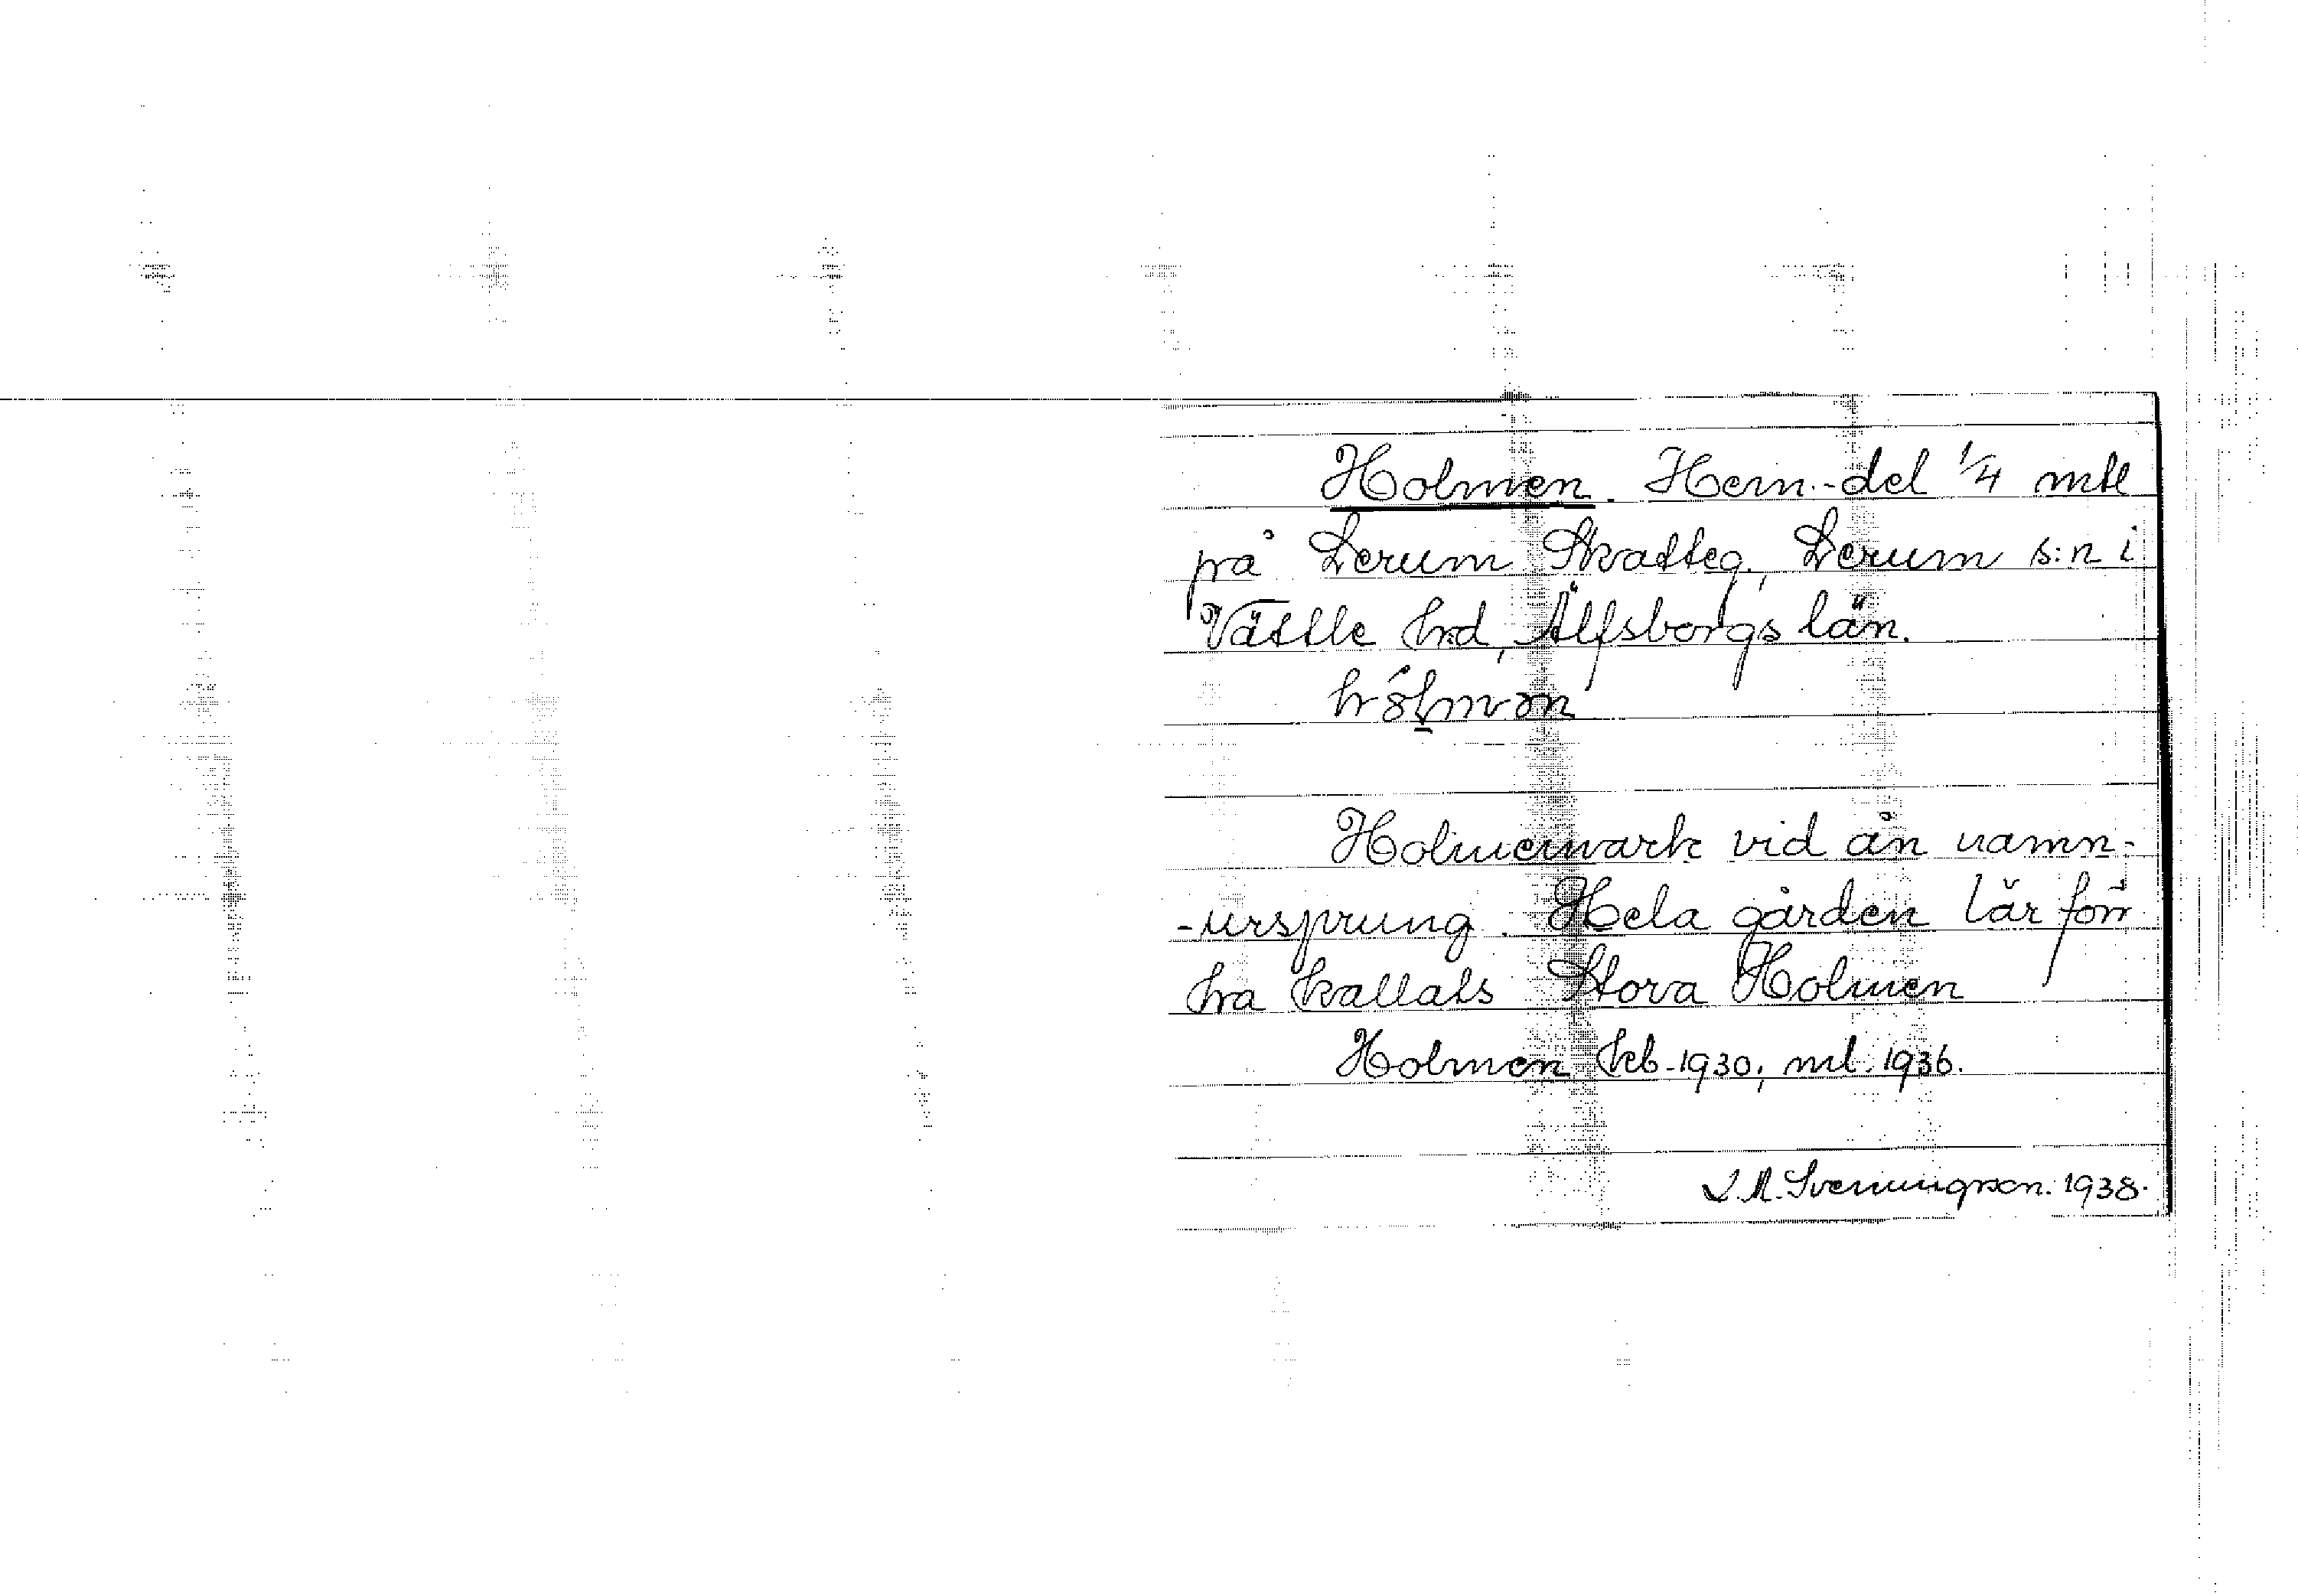 Holmen. Hem.-del 1/4 mtl
på Lerum Skatteg., Lerum s:n i
Vättle hrd, Älfsborgs län.
hólmən
Holmemark vid ån namn-
-ursprung. Hela gården lär förr
ha kallats Stora Holmen
Holmen kb. 1930; ml. 1936.
J. A. Svenungson. 1938.